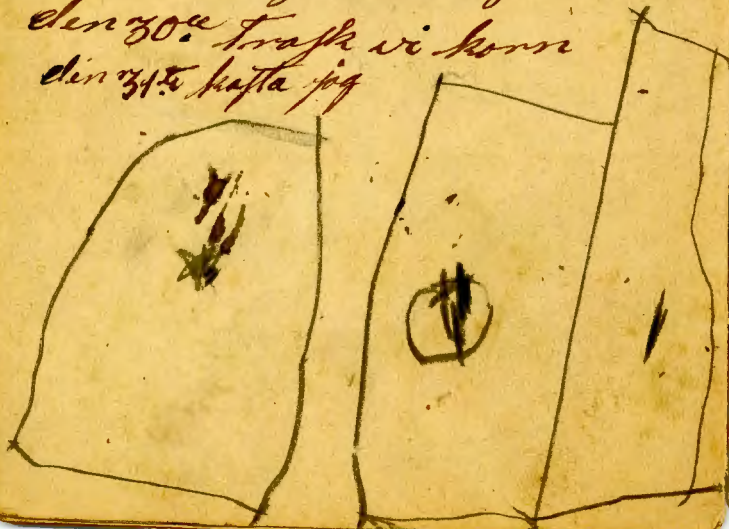 den 30te Trask vi korn
den 31te hafta jag